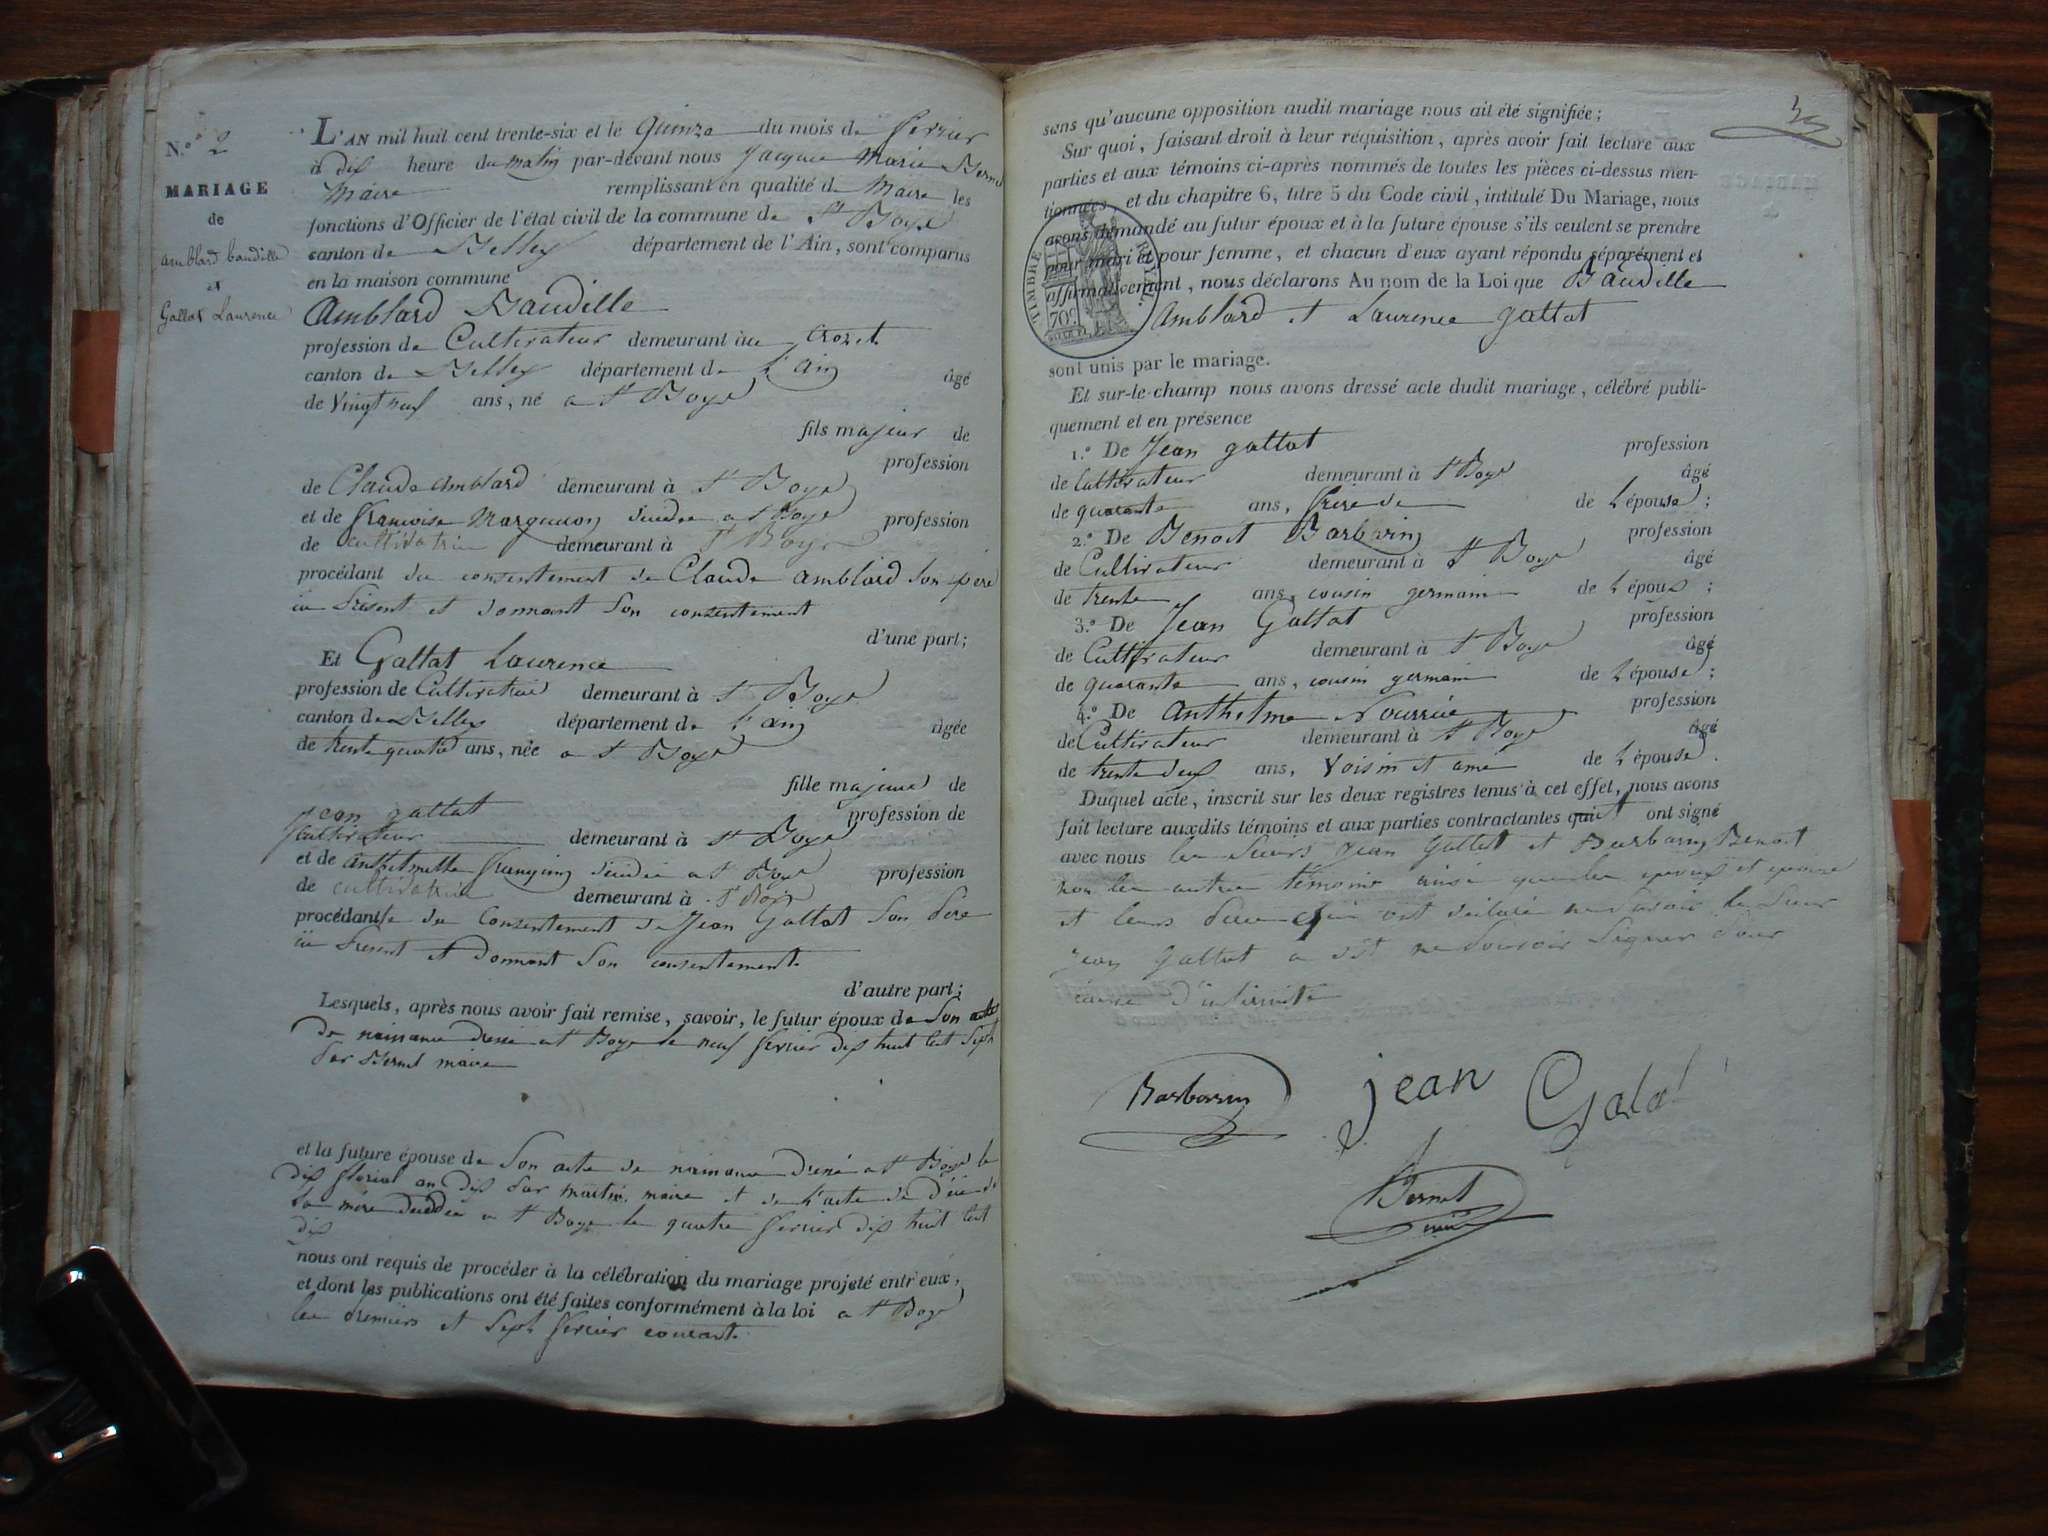 N.° 2
MARIAGE
de
amblard baudille
et
Gallat Laurence
L'AN mil huit cent trente-six et le Quinze du mois de fevrier
à dix heure du matin par-devant nous Jacque Marie Bernet
Maire remplissant en qualité de Maire les
fonctions d'Officier de l'état civil de la commune de St Boye
canton de Belley département de l'Ain, sont comparus
en la maison commune
Amblard Baudille
profession de Cultivateur demeurant au Crozet
canton de Belley département de L'ain âgé
de Vingt neuf ans, né a St Boye
fils majeur de
profession
de Claude Amblard demeurant à St Boye
et de françoise décédée a St Boye profession
de cultivatrice demeurant à St Boye
procédant du consentement de Claude amblard son père
ici présent et donnant son consentement
d'une part;
Et Gallat Laurence
profession de Cultivatrice demeurant à St Boye
canton de Belley département de L'ain âgée
de trente quatre ans, née a St Boye
fille majeure de
jean gallat profession de
Cultivateur demeurant à St Boye
et de anthelmette françin décédée a St Boye profession
de cultivatrice demeurant à St Boye
procédante du Consentement de Jean Gallat son père
ici présent et donnant son consentement
d'autre part;
Lesquels, après nous avoir fait remise, savoir, le futur époux de son acte
de naissance dressé a St Boye le neuf fevrier dix huit cent sept
par Bernet maire
et la future épouse de son acte de naissance dressé a St Boye le
dix floréal an dix par martin maire et de l'acte de décès de
sa mère décédée a St Boye le quatre fevrier dix huit cent
dix
nous ont requis de procéder à la célébration du mariage projeté entr'eux,
et dont les publications ont été faites conformément à la loi a St Boye
les premiers et sept fevrier courant
sans qu'aucune opposition audit mariage nous ait été signifiée;
Sur quoi, faisant droit à leur réquisition, après avoir fait lecture aux
parties et aux témoins ci-après nommés de toutes les pièces ci-dessus men-
tionnées, et du chapitre 6, titre 5 du Code civil, intitulé Du Mariage, nous
avons demandé au futur époux et à la future épouse s'ils veulent se prendre
pour mari et pour femme, et chacun d'eux ayant répondu séparément et
affirmativement, nous déclarons Au nom de la Loi que Baudille
Amblard et Laurence gallat
TIMBRE ROYAL
70c
sont unis par le mariage.
Et sur-le-champ nous avons dressé acte dudit mariage, célébré publi-
quement et en présence
1.° De Jean gallat profession
de Cultivateur demeurant à St Boye âgé
de quarante ans, frère de de L'épouse;
2.° De Benoit Barbarin profession
de Cultivateur demeurant à St Boye âgé
de trente ans, cousin germain de L'époux;
3.° De Jean Gallat profession
de Cultivateur demeurant à St Boye âgé
de quarante ans, cousin germain de L'épouse;
4.° De anthelme profession
de Cultivateur demeurant à St Boye âgé
de trente deux ans, Voisin et ami de L'épouse.
Duquel acte, inscrit sur les deux registres tenus à cet effet, nous avons
fait lecture auxdits témoins et aux parties contractantes qui ont signé
avec nous les sieurs Jean Gallat et Barbarin Benoit
non les autres témoins ainsi que les époux et épouse
et leurs père qui ont déclaré ne savoir le sieur
Jean Gallat a dit ne pouvoir signer pour
cause d'infirmité
Barbarin
jean Galat
Bernet
maire